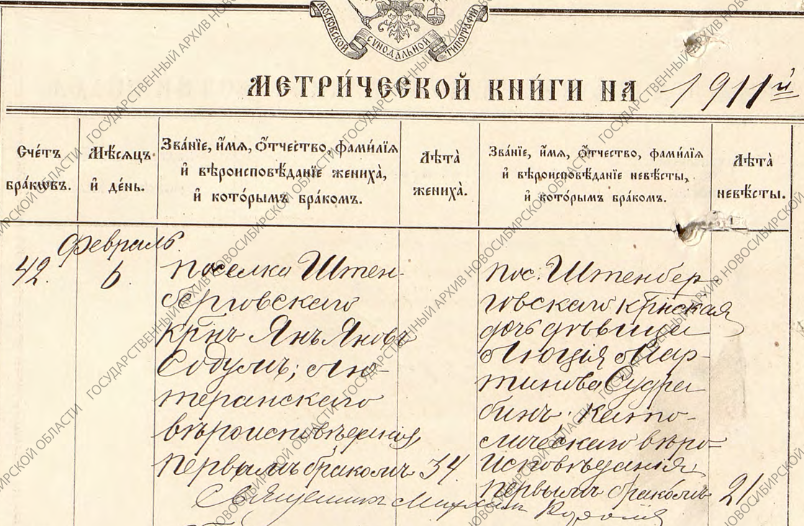 МОСКОВСКОЙ СѴНОДАЛЬНОЙ ТИПОГРАФІИ
МЕТРИ́ЧЕСКОЙ КНИ́ГИ НА 1911й
Сче́тъ бра́кωвъ.
Мѣ́сяцъ и҆ де́нь.
Зва́нїе, и҆́мя, ѻ҆́тчество, фами́лїя и҆ вѣроисповѣ́данїе жениха̀, и҆ кото́рымъ бра́комъ.
Лѣ́та жениха̀.
Зва́нїе, и҆́мя, ѻ҆́тчество, фами́лїя и҆ вѣроисповѣ́данїе невѣ́сты, и҆ кото́рымъ бра́комъ.
Лѣ́та невѣ́сты.
Февраль
42. 6.
поселка Штен-
берговскаго
крнъ Янъ Яновъ
лю-
теранскаго
вѣроисповѣданія
первымъ бракомъ 34.
пос. Штенбер
говскаго крнская
дочь дѣвица
Люція Мар-
тинова Судра
бинъ като-
лическаго вѣро-
исповѣданія
первымъ бракомъ 21
Священникъ Михаилъ
ГОСУДАРСТВЕННЫЙ АРХИВ НОВОСИБИРСКОЙ ОБЛАСТИ